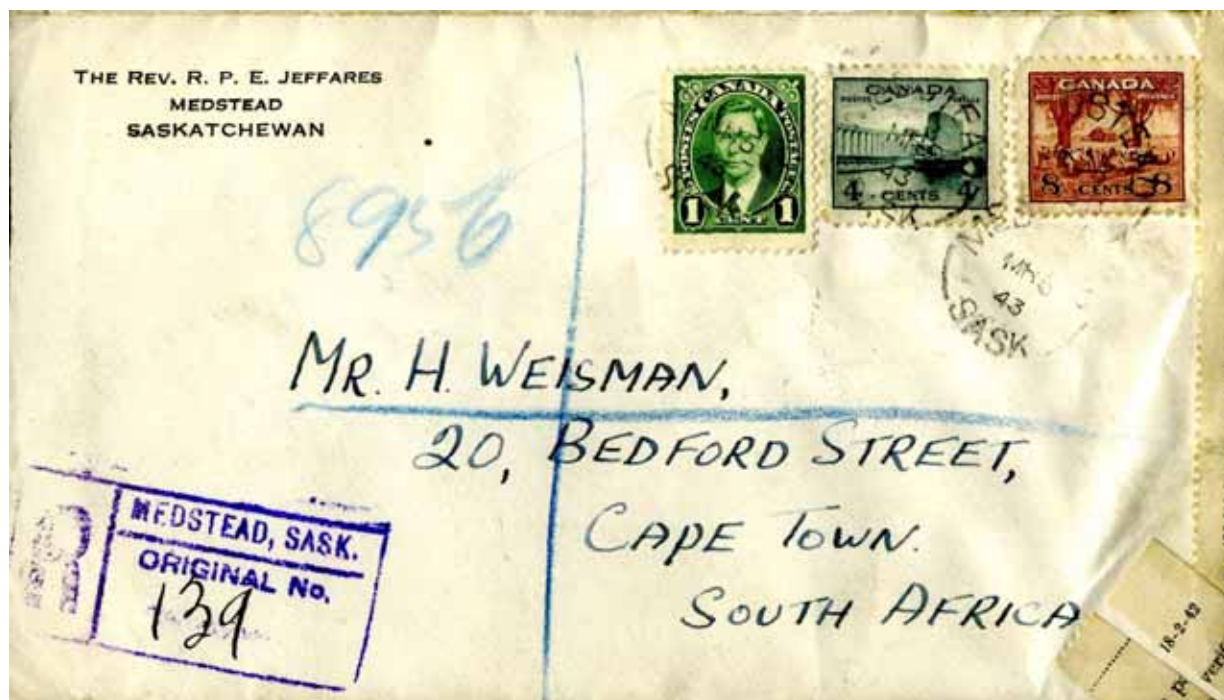 THE REV. R. P. E. JEFFARES
MEDSTEAD
SASKATCHEWAN
POSTES CANADA POSTAGE
1 CENT 1
CANADA
POSTES POSTAGE
4 CENTS 4
CANADA
8 CENTS 8
SASK
43
SASK
43
SASK
8956
MR. H. WEISMAN,
20, BEDFORD STREET,
CAPE TOWN.
SOUTH AFRICA
R
MEDSTEAD, SASK.
ORIGINAL No.
139
18-2-42